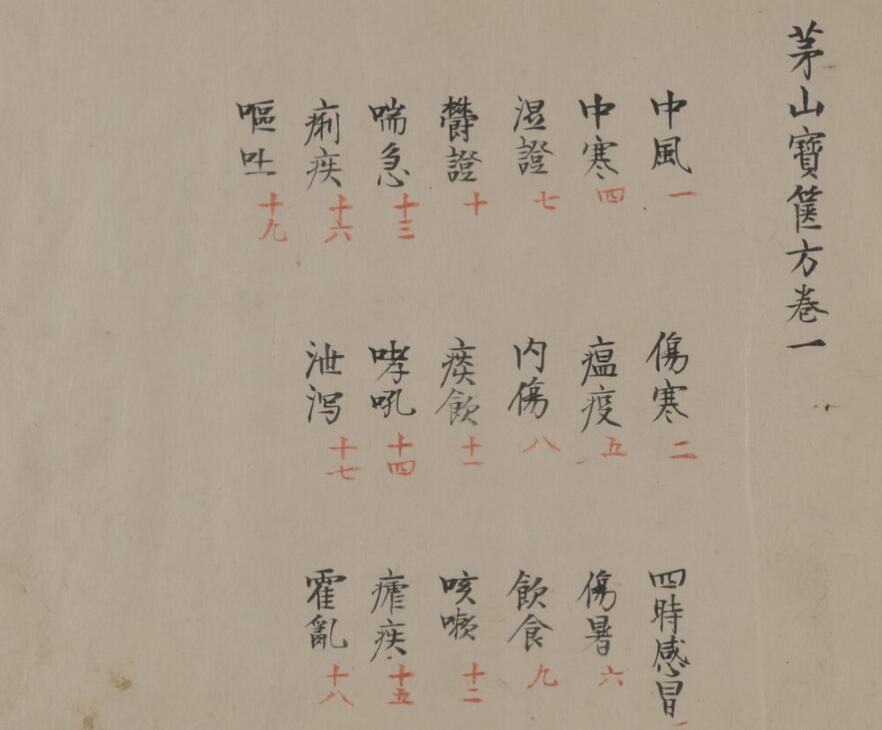 茅山寶篋方卷一
中風一 傷寒二 四時感冒
中寒四 瘟疫五 傷暑六
湿證七 内傷八 飲食九
欝證十 痰飲十一 咳嗽十二
喘急十三 哮吼十四 瘧疾十五
痢疾十六 泄泻十七 霍亂十八
嘔吐十九